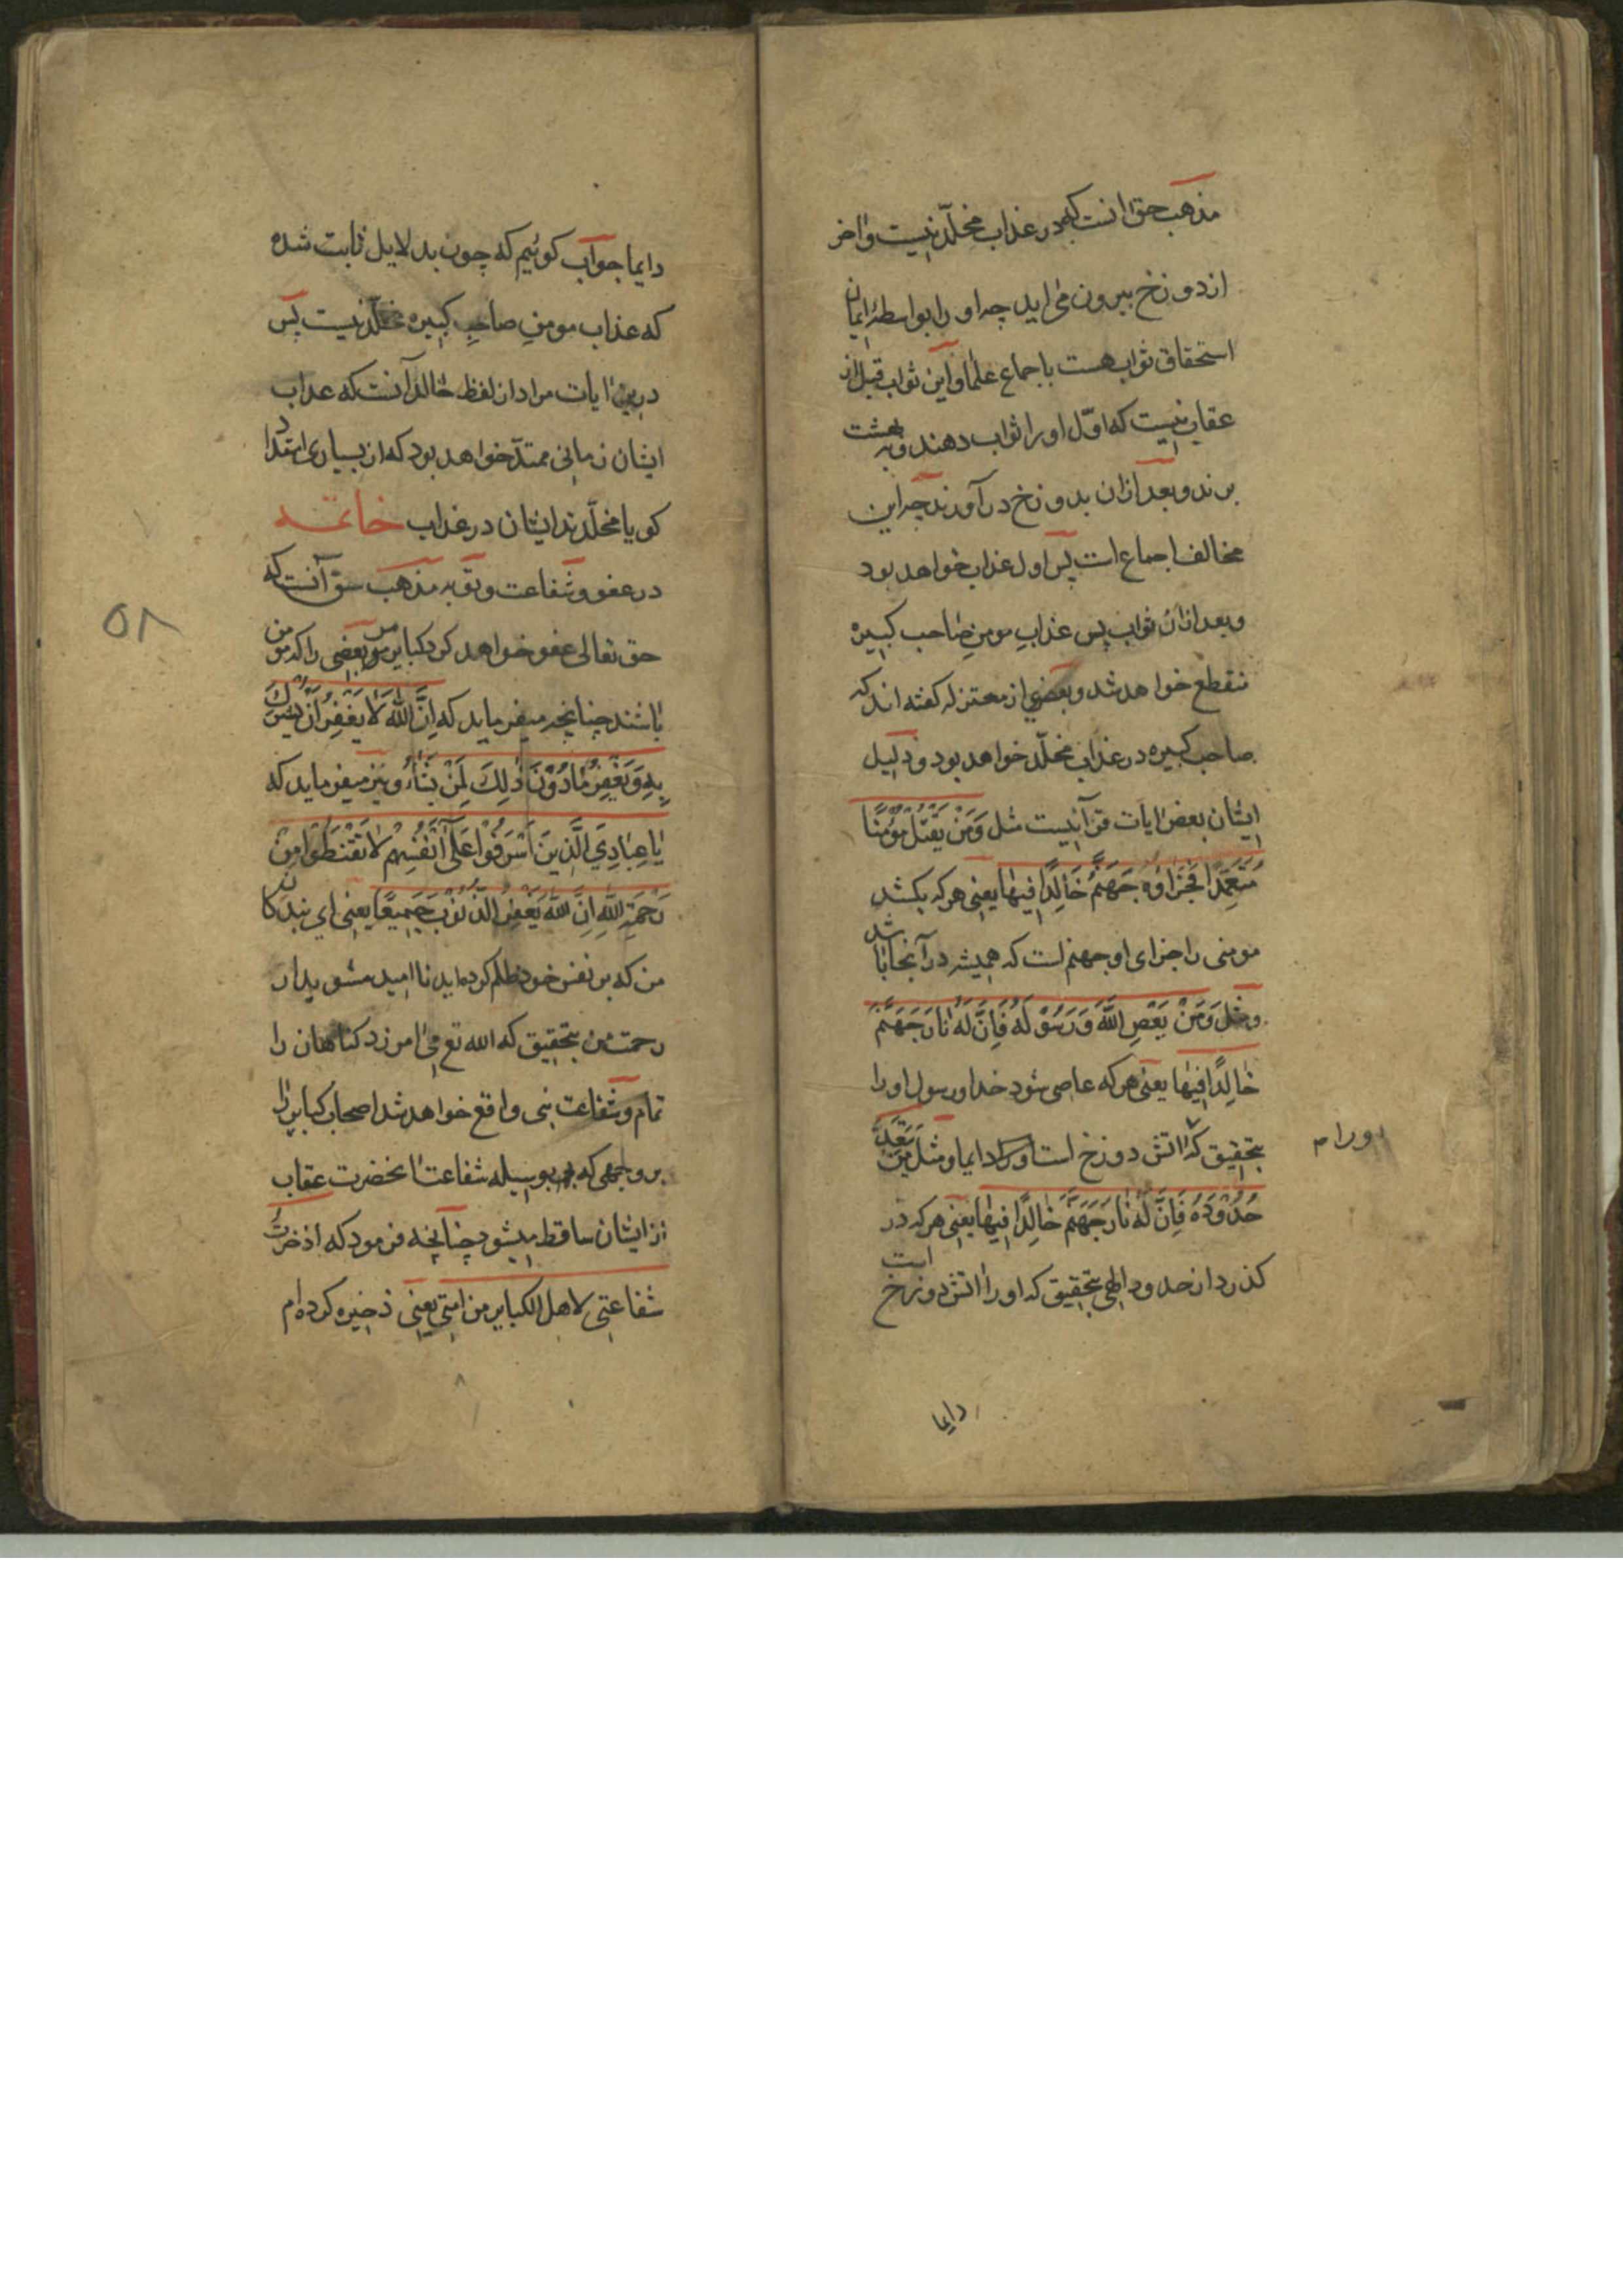 مذهب حق انست که در عذاب مخلّد نیست و اخر
از دوزخ بیرون می اید چه او را بواسطهٔ ایمان
استحقاق ثواب هست باجماع علما و این ثواب قبل از
عقاب نیست که اوّل او را ثواب دهند و به بهشت
برند و بعد ازان بدوزخ در آورند چه این
مخالف اجماع است پس اول عذاب خواهد بود
و بعد ازان ثواب پس عذابِ مومنِ صاحب کبیره
منقطع خواهد شد و بعضی از معتزله کفته اند که
صاحب کبیره در عذاب مخلّد خواهد بود و دلیل
ایشان بعض ایات قرآنیست مثل وَمَنْ یَقْتُلْ مُؤْمِنًا
مُتَعَمِّدًا فَجَزَاؤُهُ جَهَنَّمُ خَالِدًا فِیهَا یعنی هر که بکشد
مومنی را جزای او جهنم است که همیشه در آنجا باشد
و مثل وَمَنْ یَعْصِ اللَّهَ وَرَسُولَهُ فَإِنَّ لَهُ نَارَ جَهَنَّمَ
خَالِدًا فِیهَا یعنی هر که عاصی شود خدا و رسول او را
بتحقیق که اتش دوزخ است او را دایما و مثل من یَتَعَدَّ
حُدُودَهُ فَإِنَّ لَهُ نَارَ جَهَنَّمَ خَالِدًا فِیهَا یعنی هر که در
کذرد از حدود الهی بتحقیق که او را اتش دوزخ است
دایما
اورام
دایما جواب کوئیم که چون بدلایل ثابت شده
که عذاب مومنِ صاحبِ کبیره مخلّد نیست پس
درین ایات مراد از لفظ خالدا آنست که عذاب
ایشان زمانی ممتدّ خواهد بود که از بسیاری امتداد
کویا مخلّدند ایشان در عذاب خاتمه
در عفو و شفاعت و توبه مذهب حق آنست که
حق تعالی عفو خواهد کرد کبایر بعضی را که مومن
باشند چنانچه میفرماید که إِنَّ اللَّهَ لَا یَغْفِرُ أَنْ یُشْرَكَ
بِهِ وَیَغْفِرُ مَا دُونَ ذَلِكَ لِمَنْ یَشَاءُ و نیز میفرماید که
یَا عِبَادِيَ الَّذِینَ أَسْرَفُوا عَلَى أَنْفُسِهِمْ لَا تَقْنَطُوا مِنْ
رَحْمَةِ اللَّهِ إِنَّ اللَّهَ یَغْفِرُ الذُّنُوبَ جَمِیعًا یعنی ای بندکان
من که بر نفس خود ظلم کرده اید ناامید مشوید از
رحمت من بتحقیق که الله تع می امرزد کناهان را
تمام و شفاعت نبی واقع خواهد شد اصحاب کبایر را
بر وجهی که بوسیله شفاعت انحضرت عقاب
از ایشان ساقط میشود چنانچه فرمود که اذخرتُ
شفاعتی لاهل الکبایر من امتی یعنی ذخیره کرده ام
۵۸